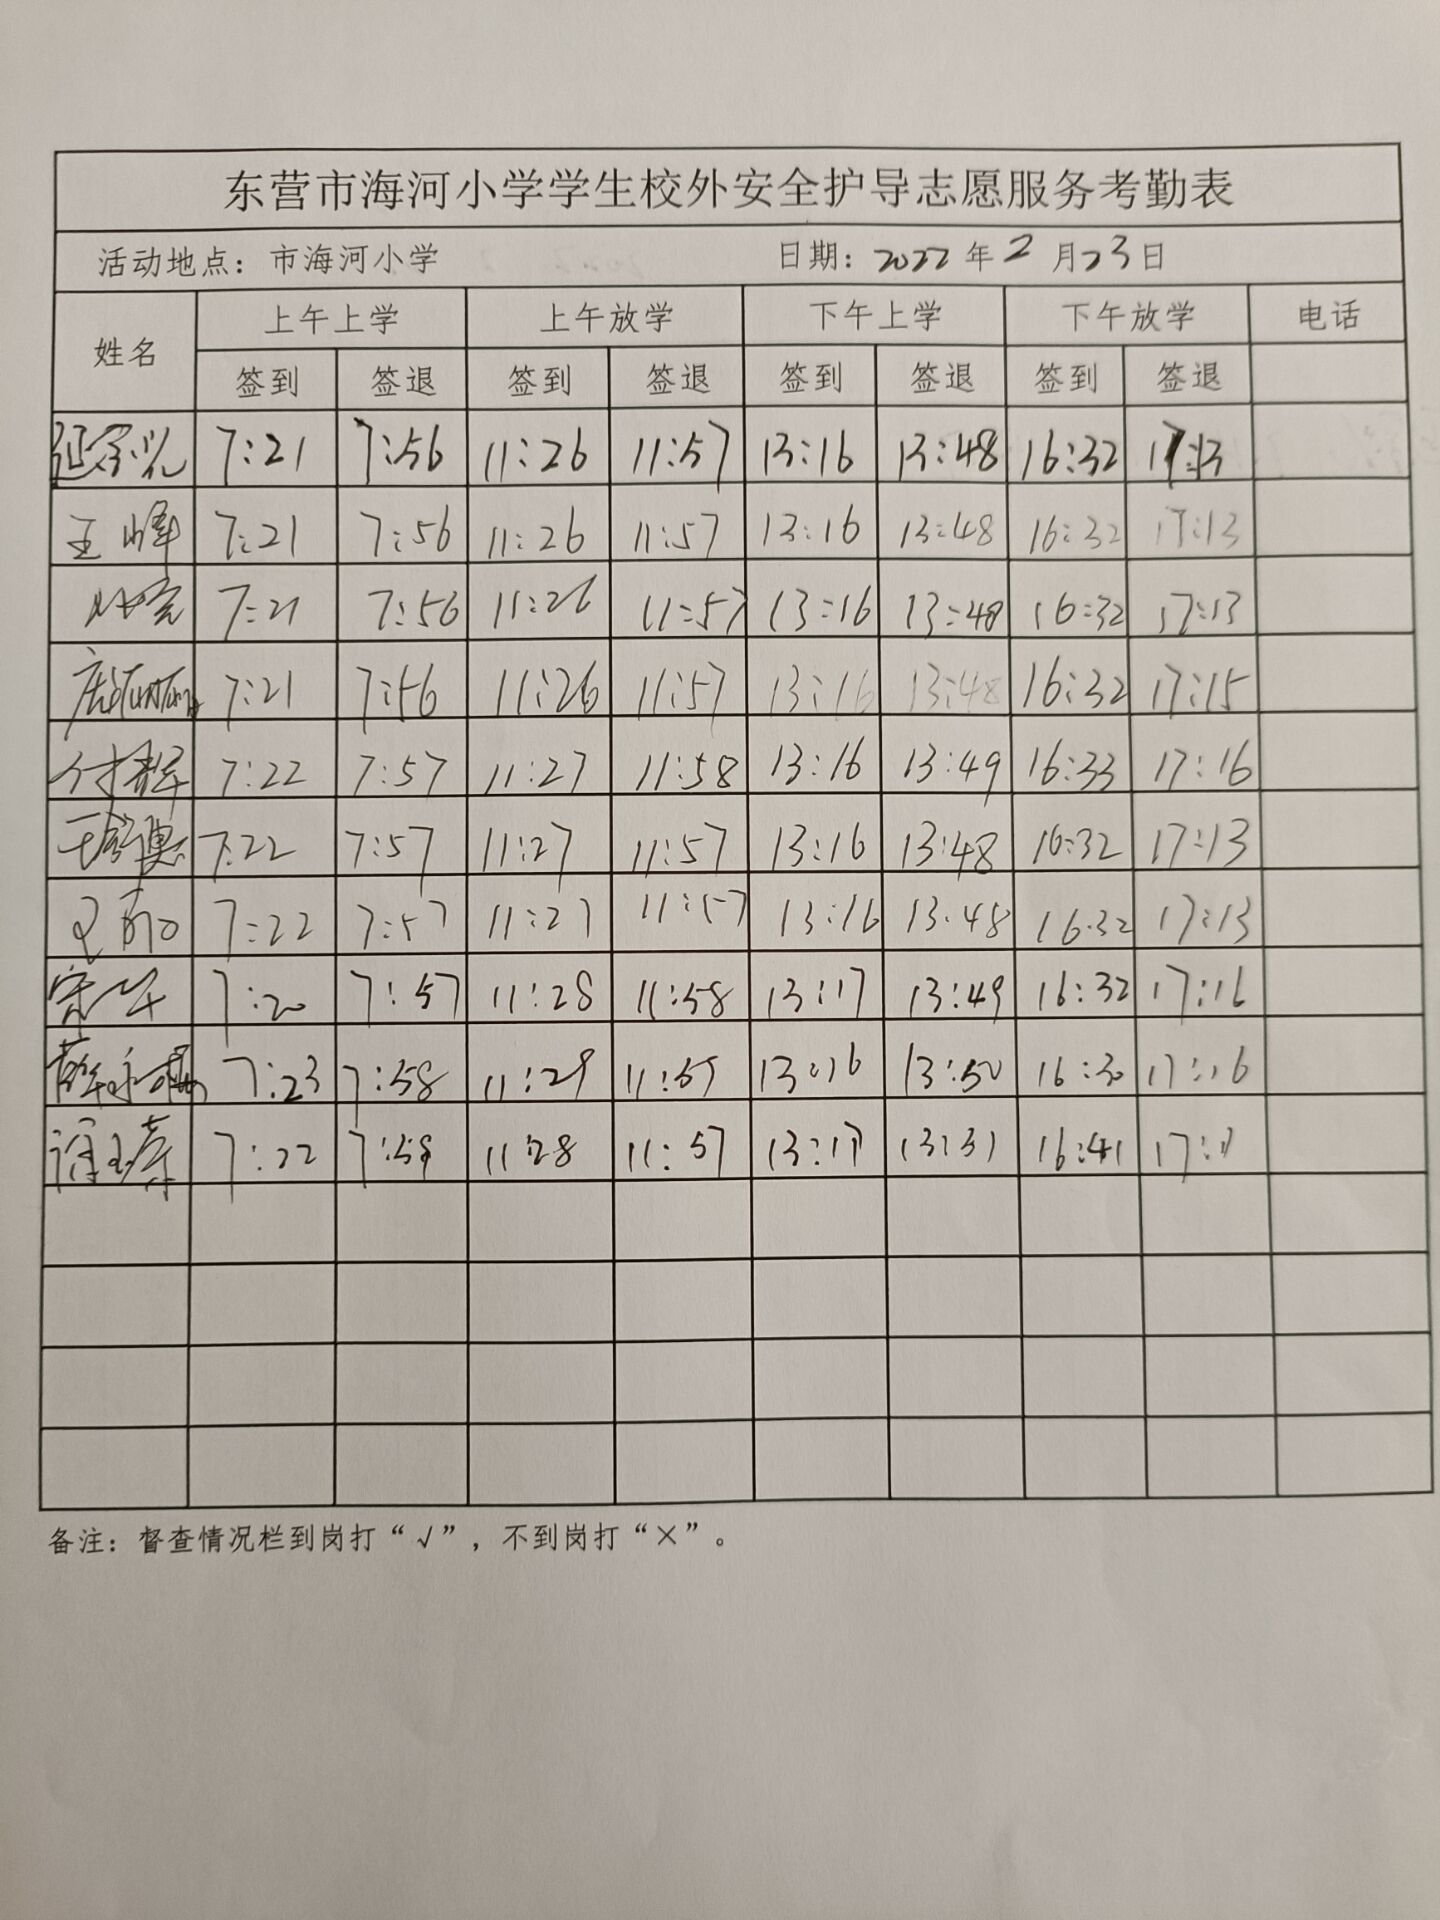 东营市海河小学学生校外安全护导志愿服务考勤表
活动地点：市海河小学 日期：2022年2月23日
姓名 上午上学 上午放学 下午上学 下午放学 电话
签到 签退 签到 签退 签到 签退 签到 签退
7:21 7:56 11:26 11:57 13:16 13:48 16:32 17:13
王峰 7:21 7:56 11:26 11:57 13:16 13:48 16:32 17:13
7:21 7:56 11:26 11:57 13:16 13:48 16:32 17:13
7:21 7:56 11:26 11:57 13:16 13:48 16:32 17:15
7:22 7:57 11:27 11:58 13:16 13:49 16:33 17:16
7:22 7:57 11:27 11:57 13:16 13:48 16:32 17:13
7:22 7:57 11:27 11:57 13:16 13:48 16:32 17:13
7:20 7:57 11:28 11:58 13:17 13:49 16:32 17:16
7:23 7:58 11:29 11:59 13:16 13:50 16:30 17:16
7:22 11:28 11:57 13:17 13:31 16:41
备注：督查情况栏到岗打“√”，不到岗打“×”。